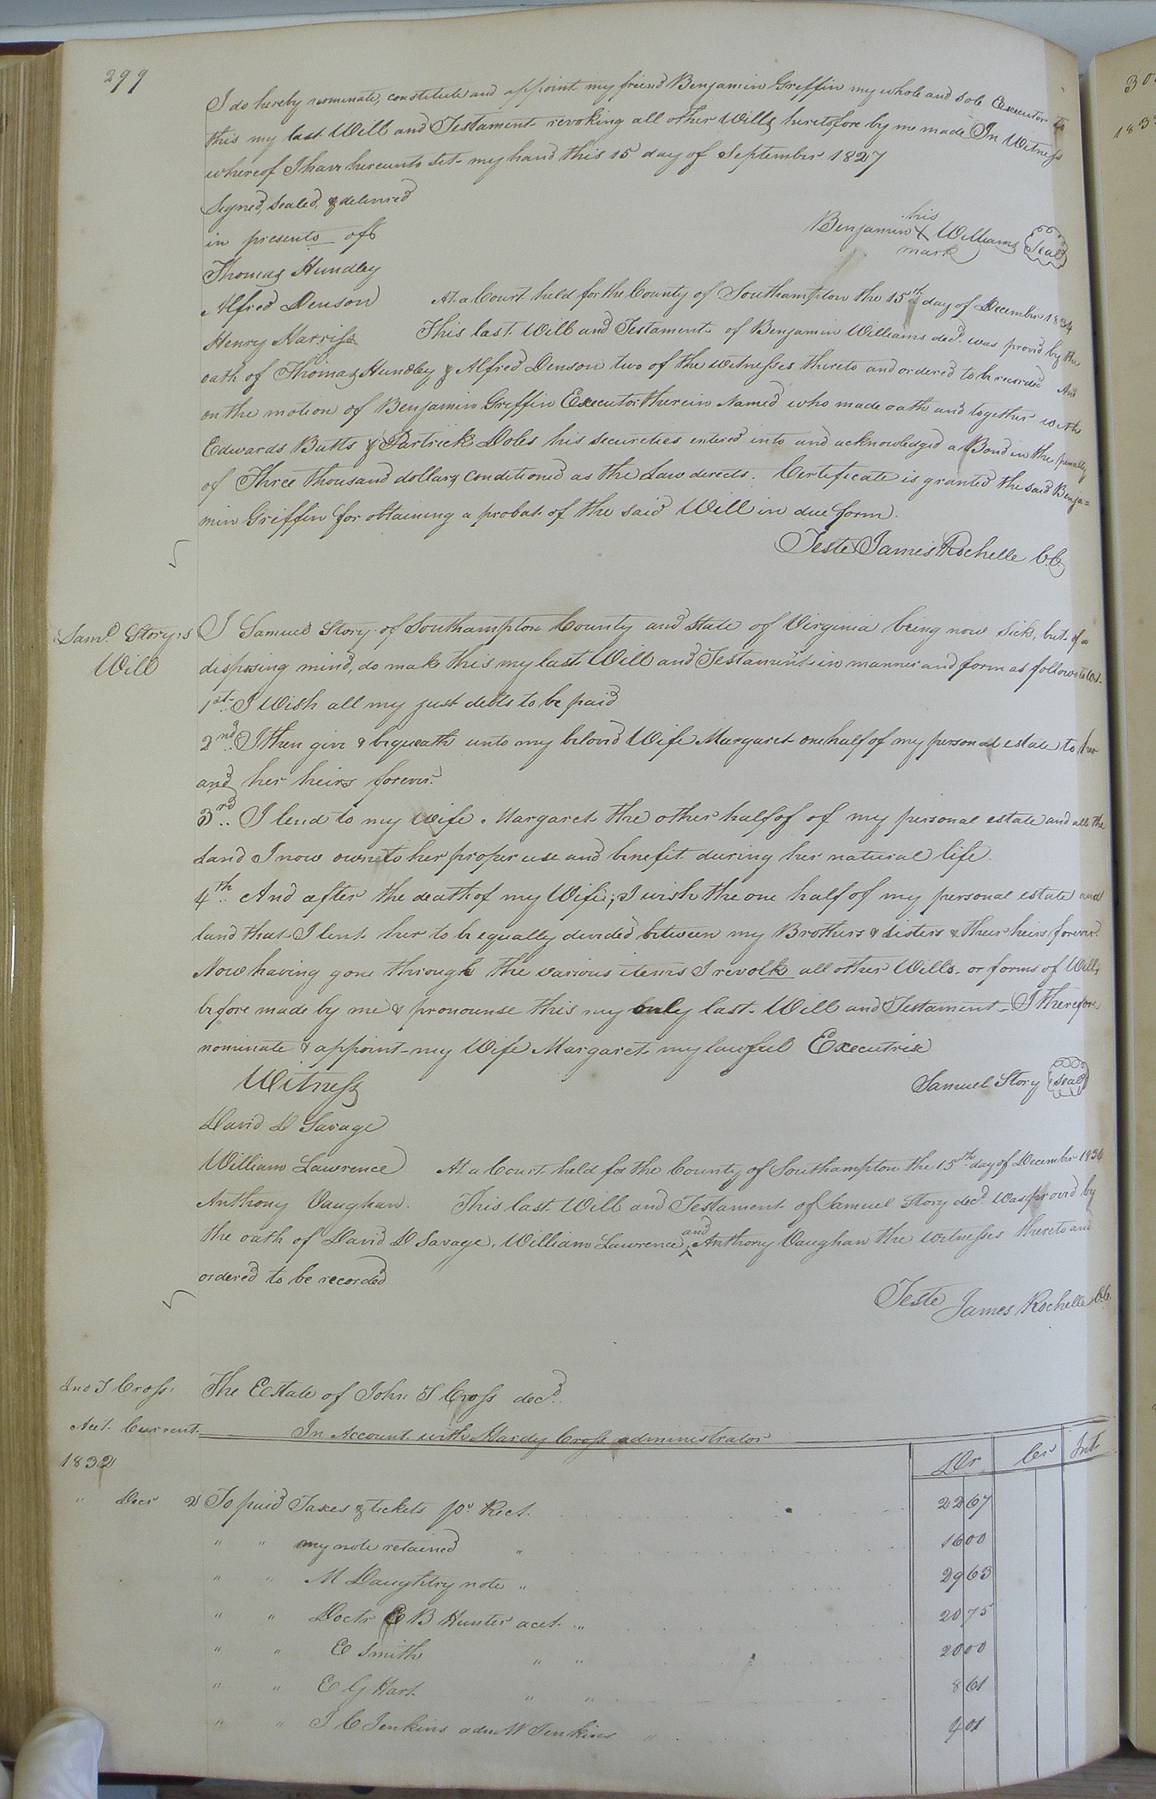 299
I do hereby nominate, constitute and appoint my friend Benjamin Griffin my whole and sole Executor to
this my last Will and Testament revoking all other Wills heretofore by me made In Witness
whereof I have hereunto set my hand this 15 day of September 1827
Signed, sealed, & delivered
in presents of
his
Benjamin X Williams Seal
mark
Thomas Hundley
Alfred Denson
At a Court held for the County of Southampton the 15th day of December 1834
Henry Harriss
This last Will and Testament of Benjamin Williams decd. was provd by the
oath of Thomas Hundley & Alfred Denson two of the witnesses thereto and ordered to be recorded And
on the motion of Benjamin Griffin Executor therein Named who made oath and together with
Edwards Butts & Partrick Doles his securities entered into and acknowledged a Bond in the penalty
of Three thousand dollars conditioned as the Law directs. Certificate is granted the said Benja=
min Griffin for obtaining a probat of the said Will in due form.
Teste James Rochelle C.C.
Saml Story's
Will
I Samuel Story of Southampton County and State of Virginia being now sick, but of a
disposing mind, do make this my last Will and Testament in manner and form as follows to wit.
1st. I Wish all my just debts to be paid
2nd. I then give & bequeath unto my belovd Wife Margaret one half of my personal estate to her
and her heirs forever.
3rd.. I lend to my wife Margaret the other half of of my personal estate and all the
Land I now own to her proper use and benefit during her natural life.
4th.. And after the death of my Wife; I wish the one half of my personal estate and
land that I lent her to be equally divided between my Brothers & Sisters & their heirs forever.
Now having gone through the various items I revolk all other Wills or forms of Wills
before made by me & pronounse this my only last Will and Testament - I therefore
nominate & appoint my Wife Margaret my lawful Executrix
Witness
Samuel Story Seal
David D Savage
William Lawrence
At a Court held for the County of Southampton the 15th day of December 1834
Anthony Vaughan.
This last Will and Testament of Samuel Story decd. was provd by
the oath of David D Savage, William Lawrence, and Anthony Vaughan the witnesses thereto and
ordered to be recorded
Teste James Rochelle C.C.
Jno T Cross'
Acct. Current.
The Estate of John T Cross decd.
In Account with Hardy Cross administrator
Dr Cr Int
1832
" Decr 2 To paid Taxes & tickets pr Rect. 22 67
" " my note retained " 16 00
" " M Daughtry note " 29 63
" " Doctr E B Hunter acct. " 20 75
" " E Smith " " 20 00
" " E G Hart " " 8 61
" " J C Jenkins adm W Jenkins " 4 01